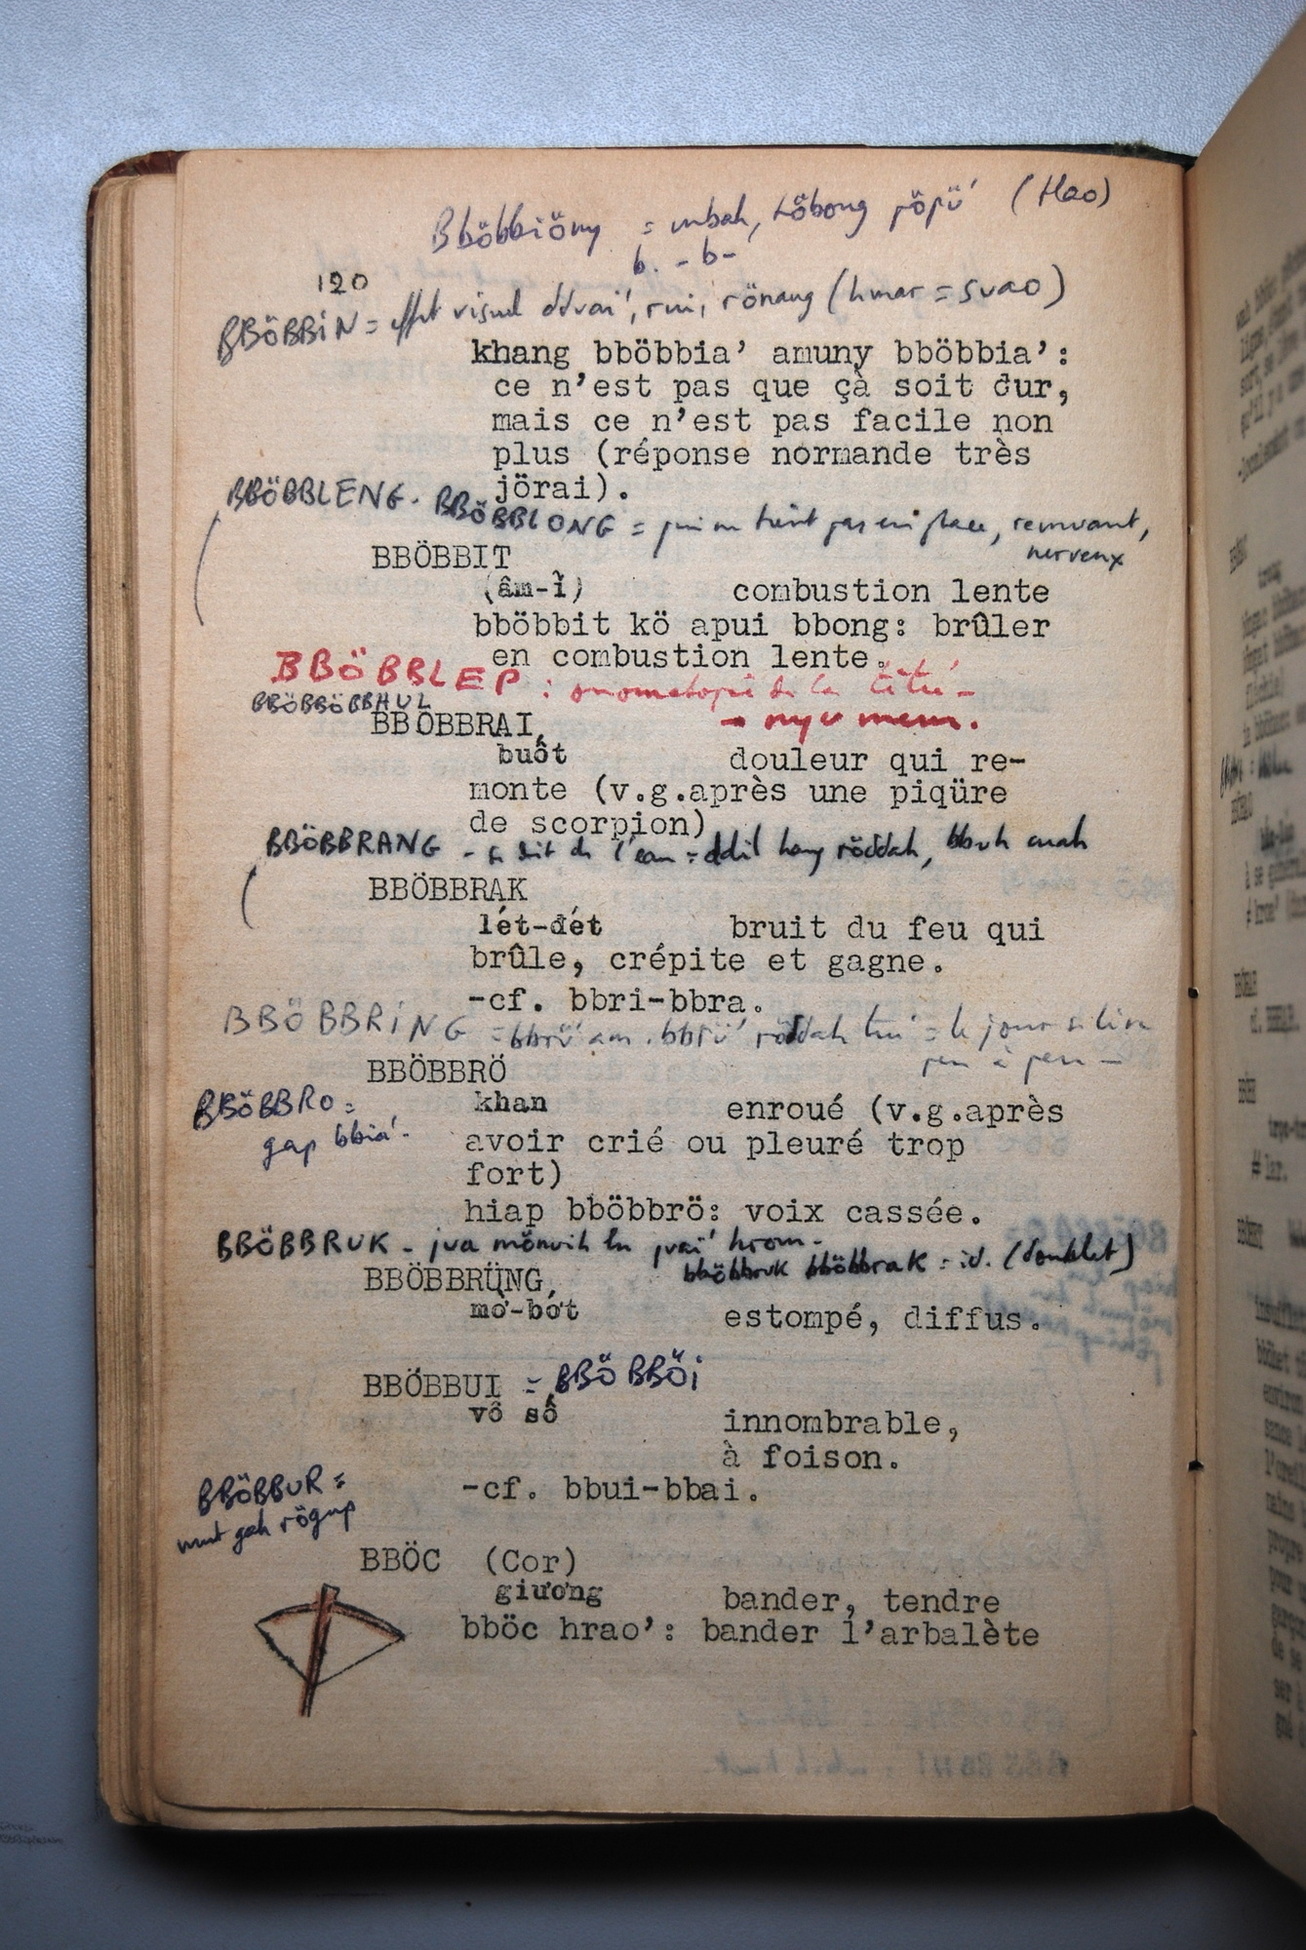 Bböbbiöny = mbah, töbong pöpü' (Hao)
b. - b-
120
BBÖBBIN = effet visuel ddvai', rui, rönang (hmar = svao)
khang bböbbia' amuny bböbbia':
ce n'est pas que çà soit dur,
mais ce n'est pas facile non
plus (réponse normande très
jörai).
BBÖBBLENG - BBÖBBLONG = qui ne tient pas en place, remuant,
nerveux
BBÖBBIT
(âm-ỉ) combustion lente
bböbbit kö apui bbong: brûler
en combustion lente.
BBÖBBLEP : onomatopée de la
BBÖBBÖBBHUL
BBÖBBRAI,
buốt douleur qui re-
monte (v.g.après une piqüre
de scorpion)
BBÖBBRANG - se dit de l'eau = ddil hang röddah, bbuh anah
BBÖBBRAK
lét-đét bruit du feu qui
brûle, crépite et gagne.
-cf. bbri-bbra.
BBÖBBRING = bbrü' am bbrü' röddah = le jour se lève
peu à peu -
BBÖBBRÖ
BBÖBBRO =
gap bbia' -
khan enroué (v.g.après
avoir crié ou pleuré trop
fort)
hiap bböbbrö: voix cassée.
BBÖBBRUK - jua mönuih
bböbbruk bböbbrak = id. (doublet)
BBÖBBRÜNG,
mờ-bớt estompé, diffus.
BBÖBBUI = BBÖBBÖI
vô số innombrable,
à foison.
-cf. bbui-bbai.
BBÖBBUR =
mut gah rögup
BBÖC (Cor)
giương bander, tendre
bböc hrao': bander l'arbalète